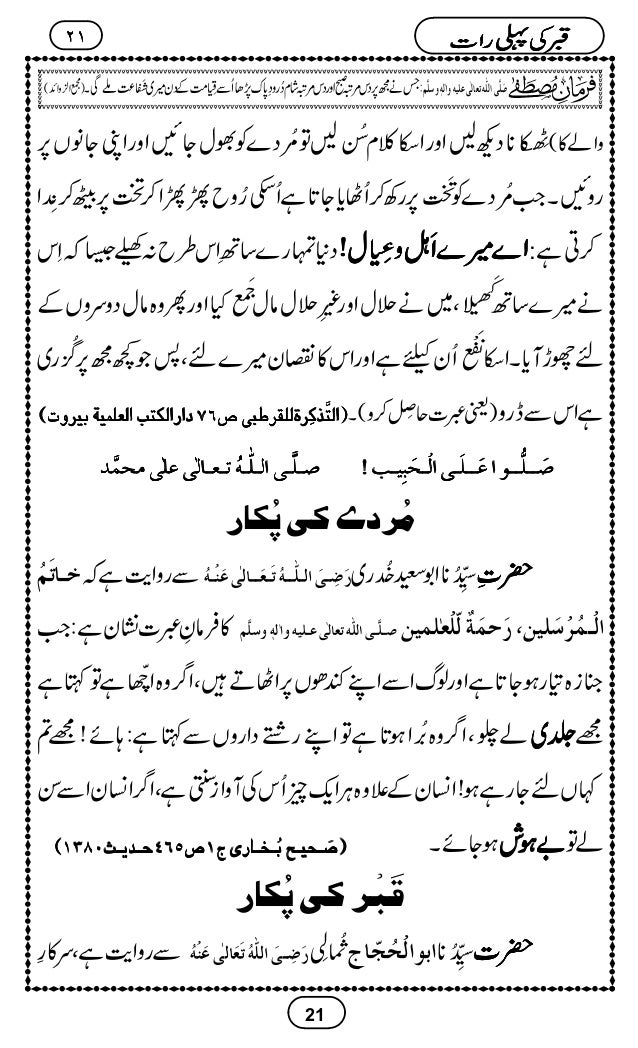 قبر کی پہلی رات
۲۱
فرمانِ مُصطَفٰے صلی اللہ تعالٰی علیہ والہٖ وسلّم: جس نے مجھ پر دس مرتبہ صبح اور دس مرتبہ شام دُرودِ پاک پڑھا اُسے قیامت کے دن میری شفاعت ملے گی۔ (مجمع الزوائد)
والے کا) ٹھکانا دیکھ لیں اور اسکا کلام سُن لیں تو مُردے کو بھول جائیں اور اپنی جانوں پر
روئیں۔ جب مُردے کو تَخت پر رکھ کر اُٹھایا جاتا ہے اُسکی رُوح پھڑ پھڑا کر تخت پر بیٹھ کر نِدا
کرتی ہے: اے میرے اَہل و عِیال! دنیا تمہارے ساتھ اِس طرح نہ کھیلے جیسا کہ اِس
نے میرے ساتھ کَھیلا، میں نے حلال اور غیرِ حلال مال جَمع کیا اور پھر وہ مال دوسروں کے
لئے چھوڑ آیا۔ اسکا نَفع اُن کیلئے ہے اور اس کا نقصان میرے لئے، پس جو کچھ مجھ پر گُزری
ہے اس سے ڈرو (یعنی عبرت حاصِل کرو)۔ (التَّذکِرۃ للقرطبی ص۷۶ دارالکتب العلمیۃ بیروت)
صَلُّوا عَلَی الْحَبِیب! صلَّی اللہُ تعالٰی علٰی محمَّد
مُردے کی پُکار
حضرتِ سیِّدُنا ابو سعید خُدری رَضِیَ اللہُ تَعَالٰی عَنْہُ سے روایت ہے کہ خاتَمُ
الْمُرْسَلین، رَحمَۃٌ لِّلْعٰلمین صلَّی اللہ تعالٰی علیہ والہٖ وسلَّم کا فرمانِ عبرت نشان ہے: جب
جنازہ تیار ہو جاتا ہے اور لوگ اسے اپنے کندھوں پر اٹھاتے ہیں، اگر وہ اچّھا ہے تو کہتا ہے
مجھے جلدی لے چلو، اگر وہ بُرا ہوتا ہے تو اپنے رشتے داروں سے کہتا ہے: ہائے! مجھے تم
کہاں لئے جا رہے ہو! انسان کے علاوہ ہر ایک چیز اُس کی آواز سنتی ہے، اگر انسان اسے سن
لے تو بے ہوش ہو جائے۔ (صَحِیح بُخاری ج۱ ص۴۶۵ حدیث۱۳۸۰)
قَبْر کی پُکار
حضرت سیِّدُنا ابو الْحُجّاج ثُمالی رَضِیَ اللہُ تَعَالٰی عَنْہُ سے روایت ہے، سرکارِ
21